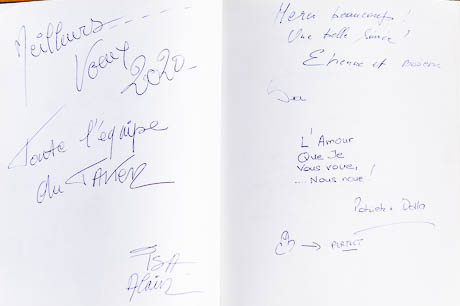 Meilleurs
Voeux
2020
Toute l'équipe
du
Isa
Alain
Merci beaucoup!
Une belle soirée!
Etienne et
L'Amour
Que Je
Vous voue,
... Nous noue!
→ PERFECT